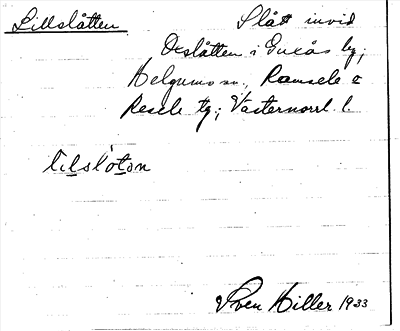 Lillslåtten Slått invid
Oxslåtten i Guxås by;
Helgums sn., Ramsele o
Resele tg; Västernorrl. l.
lìlslòtən
Sven Hiller 1933